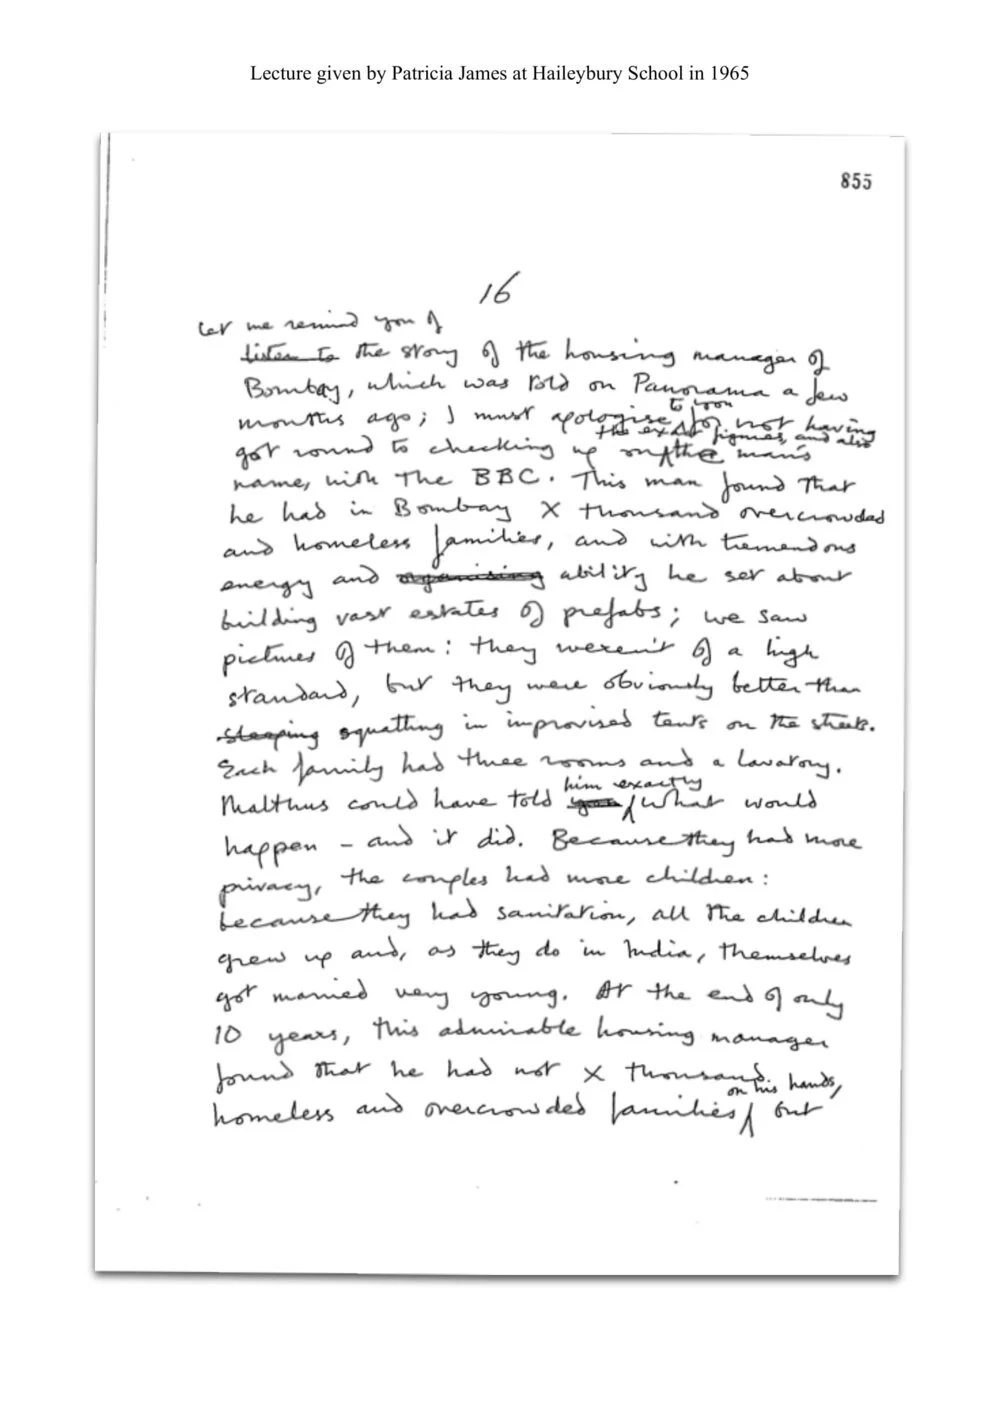 Lecture given by Patricia James at Haileybury School in 1965
855
16
Let me remind you of
listen to the story of the housing manager of
Bombay, which was told on Panorama a few
to you
months ago; I must apologise for not having
the exact figures, and also
got round to checking up on the man's
name, with the BBC. This man found that
he had in Bombay X thousand overcrowded
and homeless families, and with tremendous
energy and organising ability he set about
building vast estates of prefabs; we saw
pictures of them: they weren't of a high
standard, but they were obviously better than
sleeping squatting in improvised tents on the streets.
Each family had three rooms and a lavatory.
him exactly
Malthus could have told you what would
happen – and it did. Because they had more
privacy, the couples had more children:
because they had sanitation, all the children
grew up and, as they do in India, themselves
got married very young. At the end of only
10 years, this admirable housing manager
found that he had not X thousand
on his hands,
homeless and overcrowded families, but